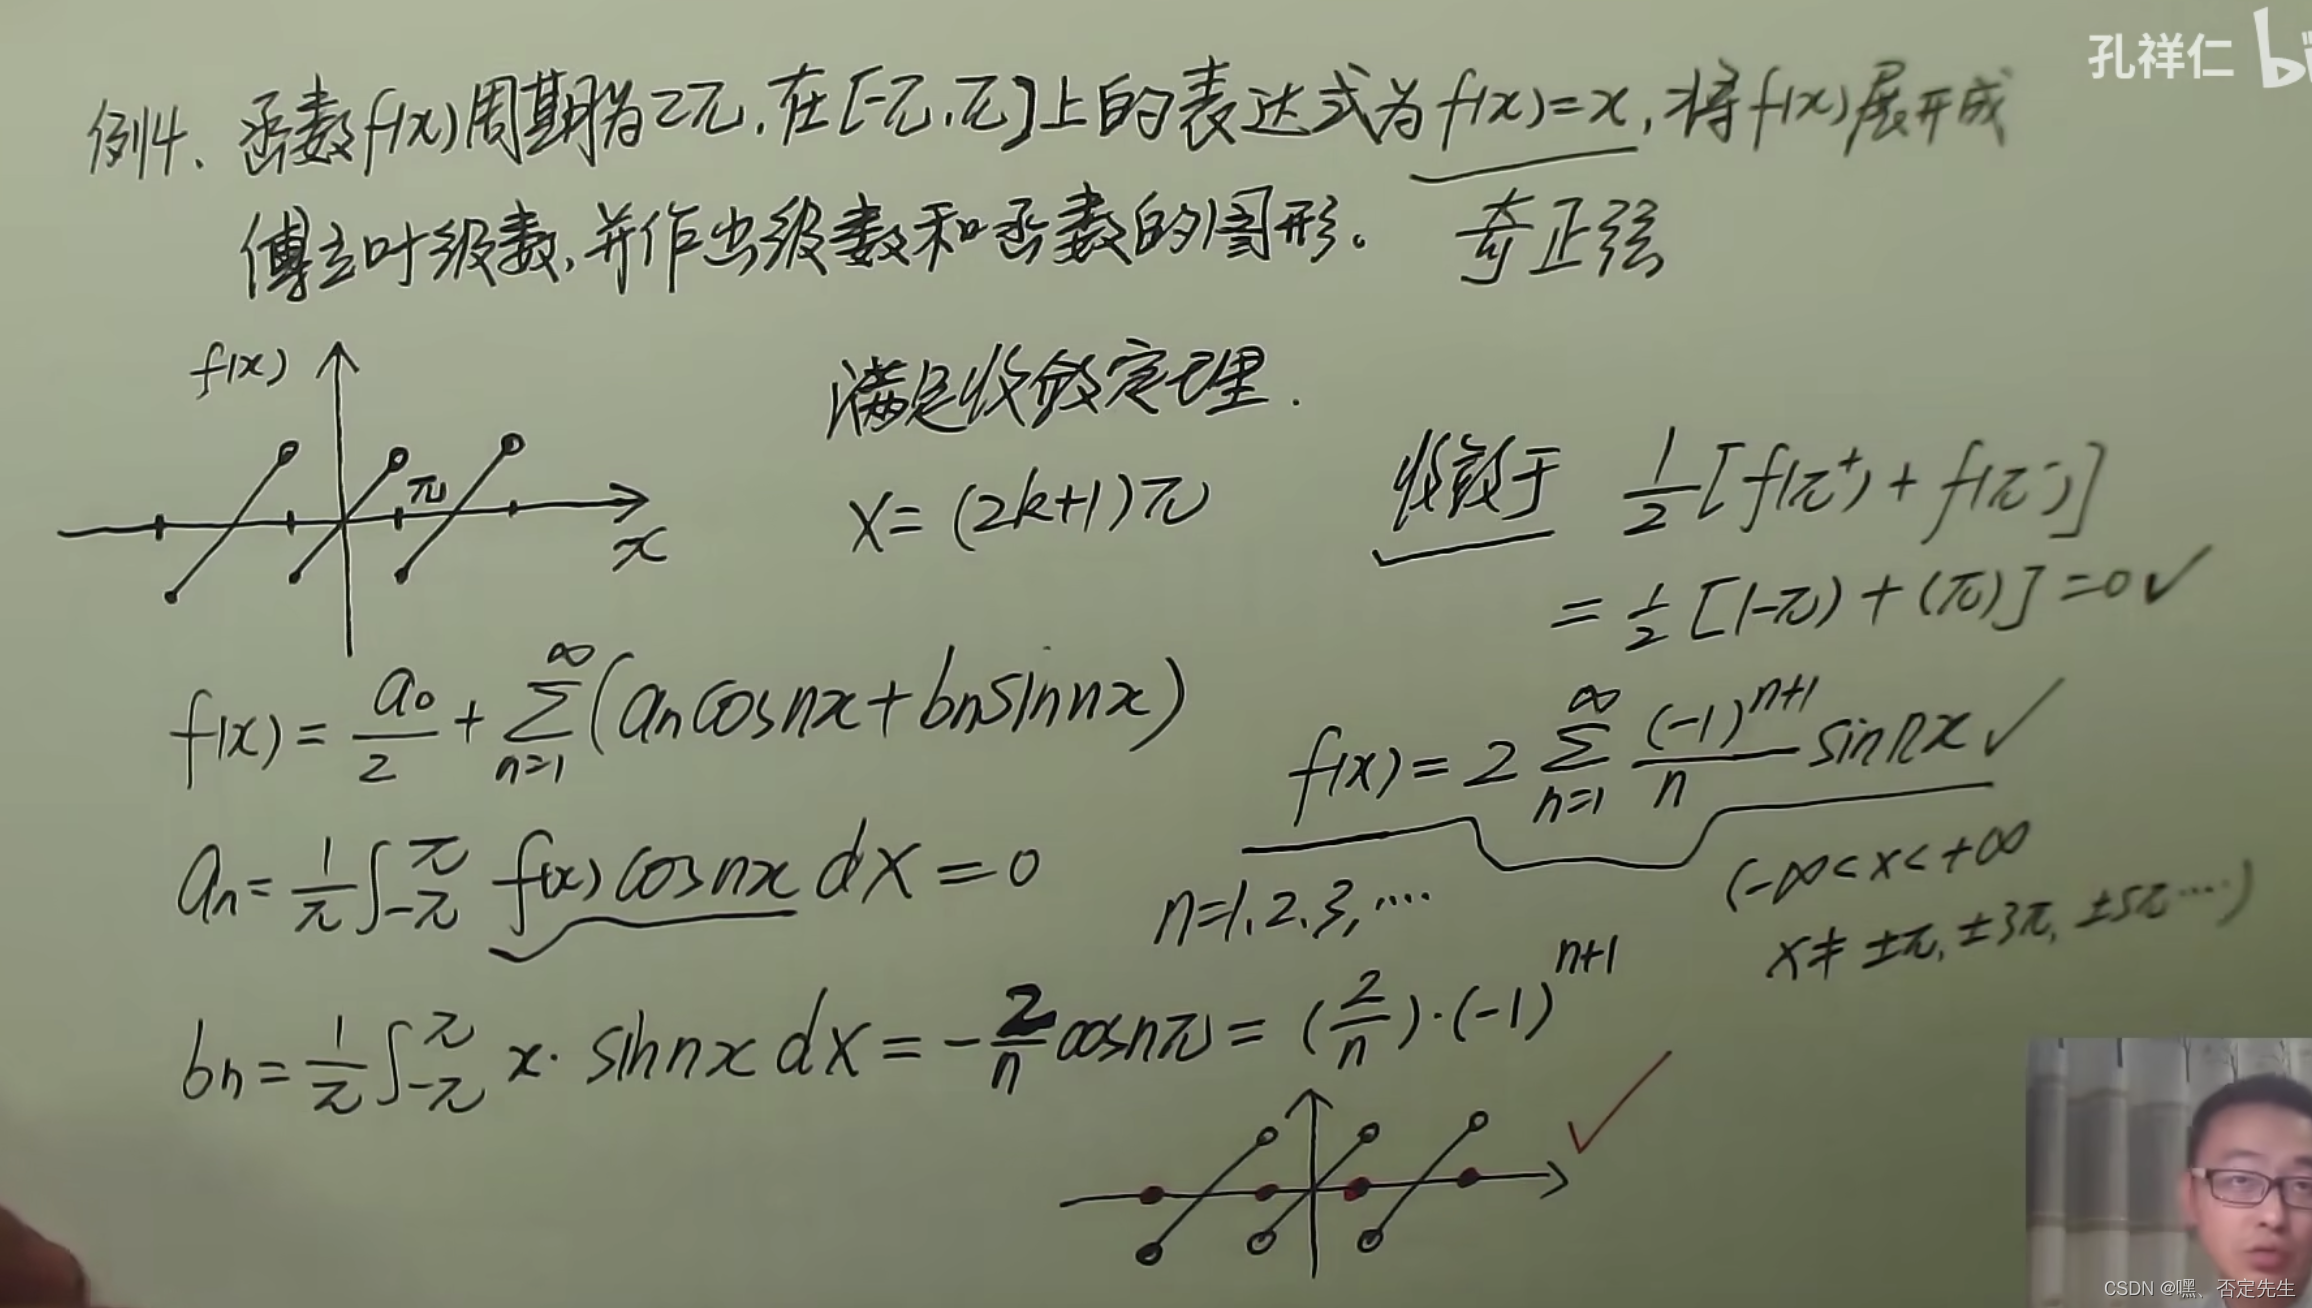 孔祥仁 bi
例4、函数f(x)周期为2π,在[-π,π]上的表达式为f(x)=x,将f(x)展开成
傅立叶级数,并作出级数和函数的图形。 奇正弦
f(x)
满足收敛定理.
π
x
x=(2k+1)π
收敛于 1/2[f(π⁺)+f(π⁻)]
=1/2[(-π)+(π)]=0✓
f(x)=a₀/2+∑_{n=1}^{∞}(aₙcosnx+bₙsinnx)
f(x)=2∑_{n=1}^{∞}(-1)^{n+1}/n sinnx✓
(-∞<x<+∞
x≠±π,±3π,±5π····)
aₙ=1/π∫_{-π}^{π}f(x)cosnxdx=0
n=1.2.3,····
bₙ=1/π∫_{-π}^{π}x·sinnxdx=-2/n cosnπ=(2/n)·(-1)^{n+1}
✓
CSDN @嘿、否定先生